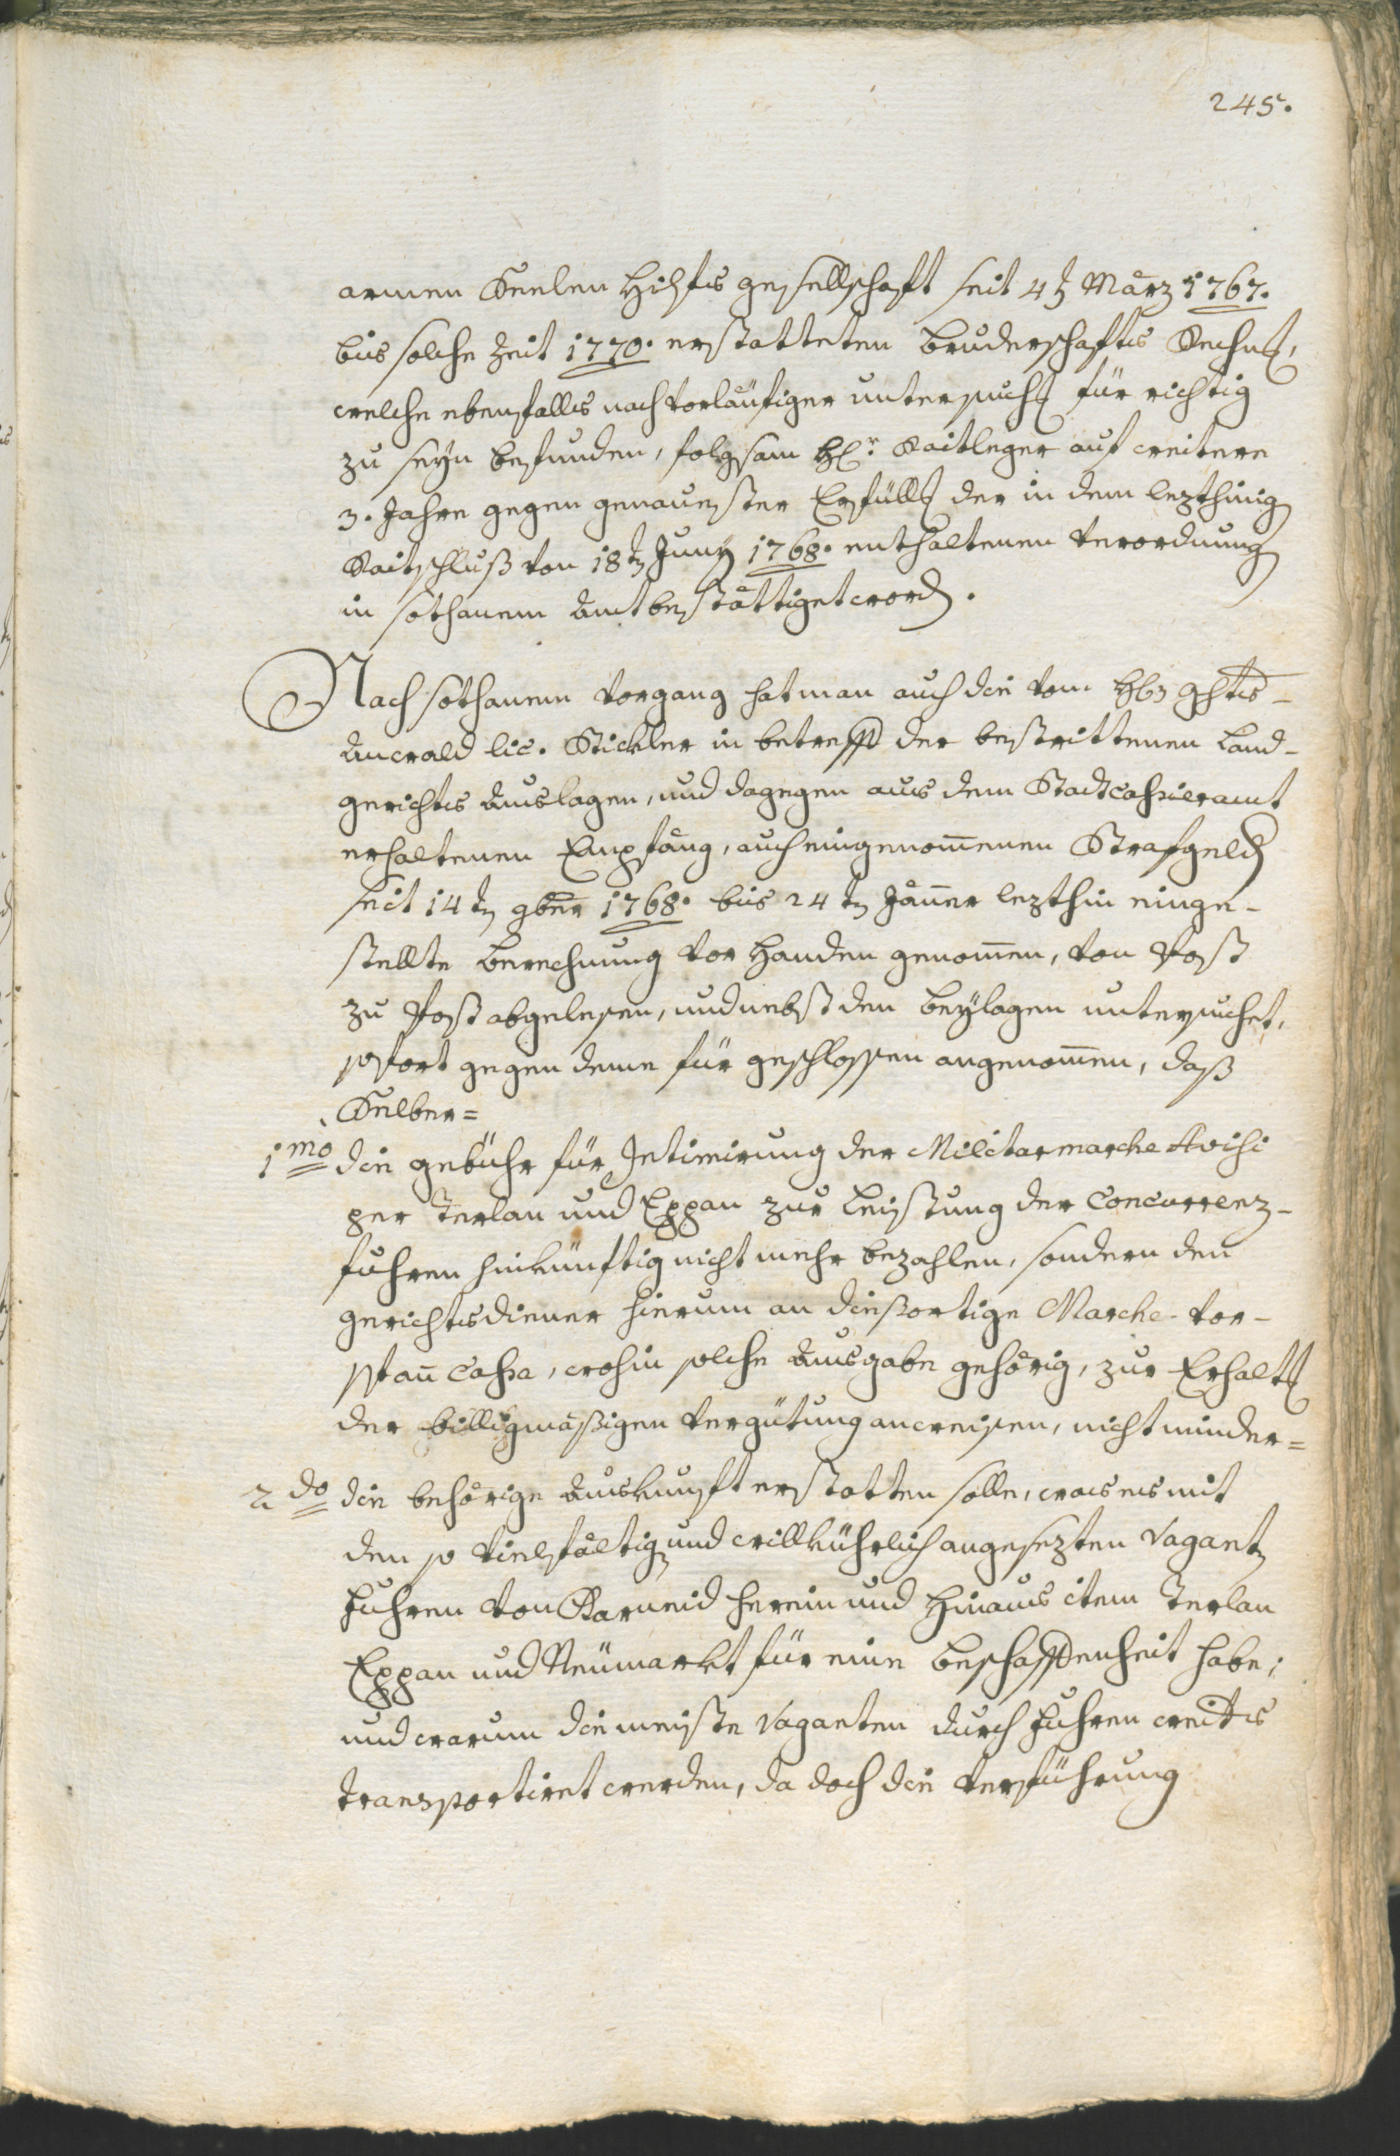 245.
armen Seelen Hilfs gesellschaft seit 4ten März 1767.
bis solche Zeit 1770. erstatteten Bruderschafts Rechnung,
welche ebenfalls nach vorläufiger untersuchung für richtig
zu seyn befunden, folgsam Herr Raitleger auf weitere
3. Jahre gegen genauester Erfüllung der in dem lezthinig
Raitschluß von 18ten Juny 1768. enthaltenen Verordnung
in sothanem Amt bestättiget worden.
Nach sothanem Vorgang hat man auch die vom Herrn gerichts-
Anwald lic. Stickler in betreff der bestrittenen Land-
gerichts Auslagen, und dagegen aus dem Stadtcassieramt
erhaltenen Empfäng, auch eingenommenen Strafgelder
seit 14ten 9ber 1768. bis 24ten Jänner lezthin einge-
stellte Berechnung vor Handen genommen, von Post
zu Post abgelesen, und nebst den Beÿlagen untersuchet,
sofort gegen deme für geschlossen angenommen, daß
Selber=
1mo die gebühr für Intimirung der Militarmarche Avisi
per Terlan und Eppan zur Leistung der Concurrenz-
fuhren hinkünftig nicht mehr bezahlen, sondern den
gerichtsdiener hierum an dießortige Marche-Vor-
spann Cassa, wohin solche Ausgabe gehörig, zur Erhaltung
der billigmäßigen Vergütung anweisen, nicht minder=
2do die behörige Auskunft erstatten solle, was es mit
den so vielfältig und willkührlich angesezten Vaganten
fuhren von Karneid herein und Hinaus item Terlan
Eppan und Neümarkt für eine Beschaffenheit habe;
und warum die meiste Vaganten durch fuhren weiters
transportiret werden, da doch die Verführung